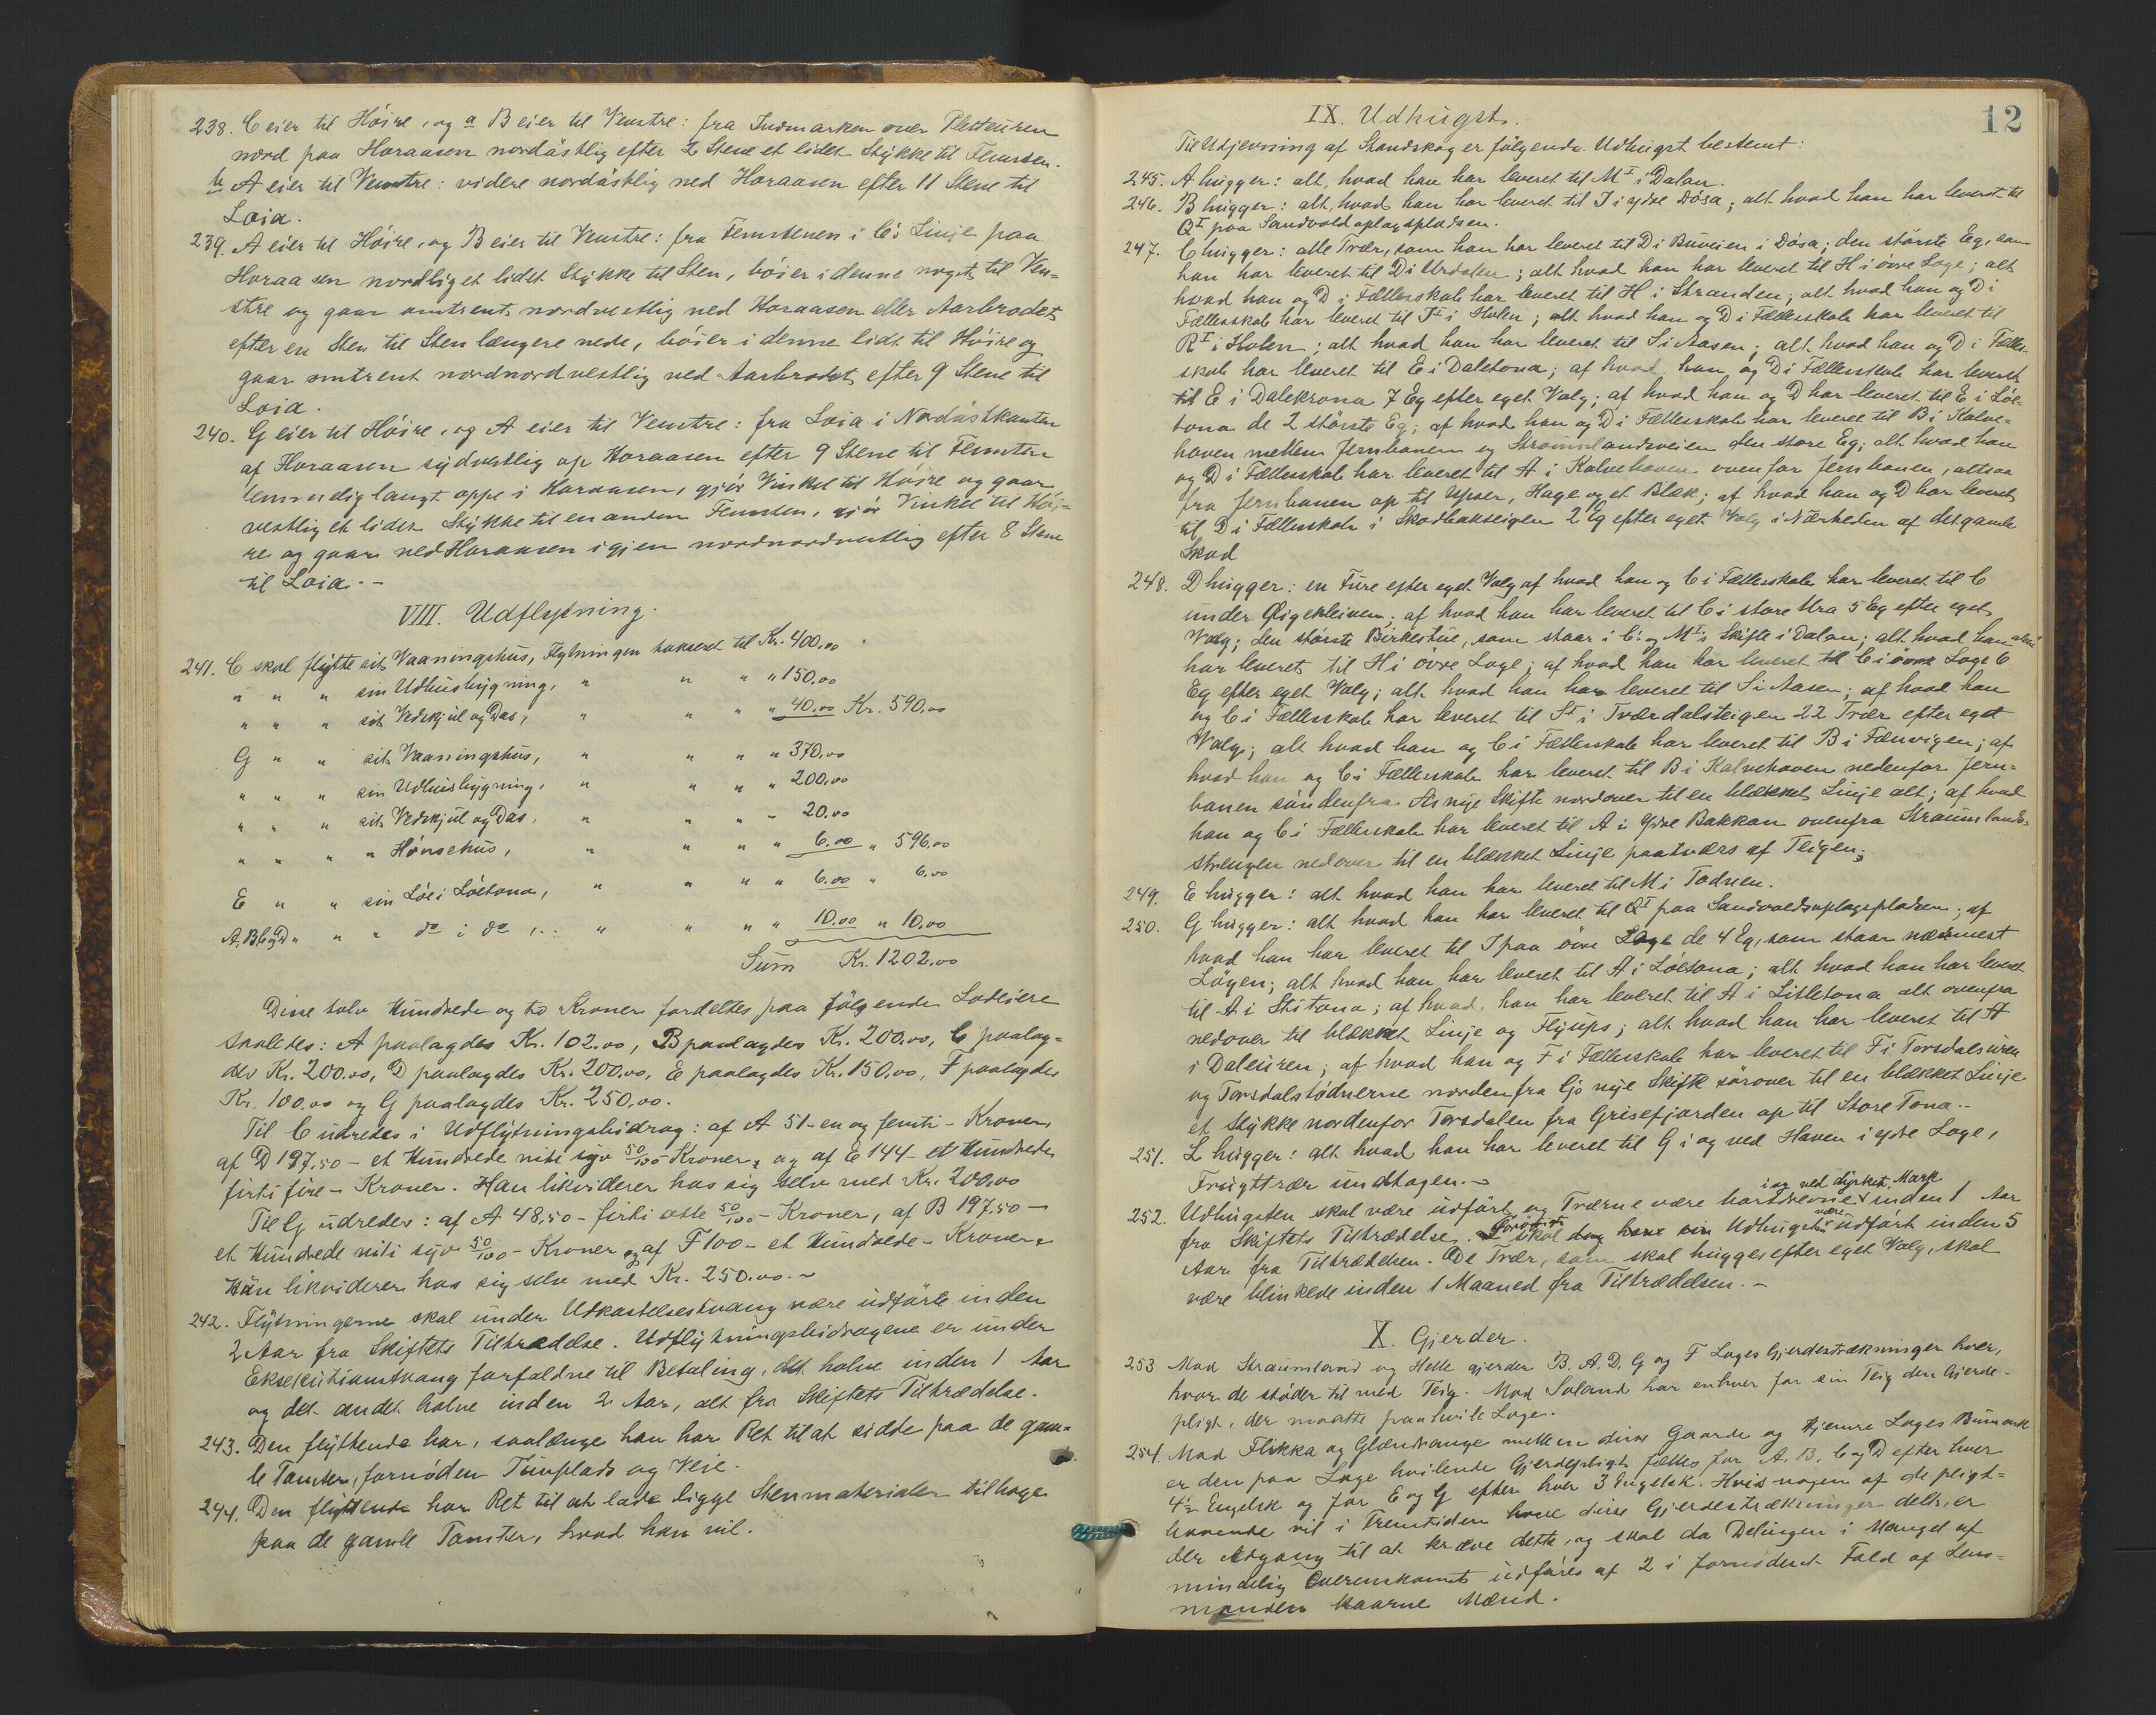 238. C eier til Höire, og a B eier til Venstre: fra Indmarken over Pletteuren
nord paa Horaasen nordästlig efter 2 Stene et lidet Stykke til Femsten.
b A eier til Venstre: videre nordästlig ned Horaasen efter 11 Stene til
Loia.
239. A eier til Höire, og B eier til Venstre: fra Femstenen i C's Linje paa
Horaasen nordlig et lidet Stykke til Sten, böier i denne noget til Ven-
stre og gaar omtrent nordvestlig ned Horaasen eller Aarbrodet
efter en Sten til Sten længere nede, böier i denne lidt til Höire og
gaar omtrent nordnordvestlig ned Aarbrodet efter 9 Stene til
Loia.
240. G eier til Höire, og A eier til Venstre: fra Loia i Nordästkanten
af Horaasen sydvestlig op Horaasen efter 9 Stene til Femsten
temmelig langt oppe i Horaasen, gjör Vinkel til Höire og gaar
vestlig et lidet Stykke til en anden Femsten, gjör Vinkel til Höi-
re og gaar ned Horaasen igjen nordnordvestlig efter 8 Stene
til Loia. -
VIII. Udflytning.
241. C skal flytte sit Vaaningshus, Flytningen takseret til Kr. 400,00
" " " sin Udhusbygning, " " " " 150,00
" " " sit Vedskjul og Das, " " " " 40,00 Kr. 590,00
G " " sit Vaaningshus, " " " " 370,00
" " " sin Udhusbygning, " " " " 200,00
" " " sit Vedskjul og Das, " " " " 20,00
" " " " Hönsehus, " " " " 6,00 " 596,00
E " " sin Löe i Löetona, " " " " 6,00 " 6,00
A, B, C og D " " " do i do, .. " " " " 10,00 " 10,00
Sum Kr. 1202,00
Disse tolv Hundrede og to Kroner fordeltes paa fölgende Lodeiere
saaledes: A paalagdes Kr. 102,00, B paalagdes Kr. 200,00, C paalag-
des Kr. 200,00, D paalagdes Kr. 200,00, E paalagdes Kr. 150,00, F paalagdes
Kr. 100,00 og G paalagdes Kr. 250,00.
Til C udredes i Udflytningsbidrag: af A 51 - en og femti - Kroner,
af D 197,50 - et Hundrede niti syv 50/100 Kroner, og af E 144 - et Hundrede
firti fire - Kroner. Han likviderer hos sig selv med Kr. 200,00
Til G udredes: af A 48,50 - firti otte 50/100 - Kroner, af B 197,50 -
et Hundrede niti syv 50/100 - Kroner og af F 100 - et Hundrede - Kroner.
Han likviderer hos sig selv med Kr. 250,00. -
242. Flytningerne skal under Udkastelsestvang være udförte inden
2 Aar fra Skiftets Tiltrædelse. Udflytningsbidragene er under
Eksekutionstvang forfaldne til Betaling, det halve inden 1 Aar
og det andet halve inden 2 Aar, alt fra Skiftets Tiltrædelse.
243. Den flyttende har, saalænge han har Ret til at sidde paa de gam-
le Tomter, fornöden Tunplads og Veie.
244. Den flyttende har Ret til at lade ligge Stenmaterialer tilbage
paa de gamle Tomter, hvad han vil.
12
IX. Udhugst.
Til Udjevning af Standskog er fölgende Udhugst bestemt:
245. A hugger: alt, hvad han har leveret til MI i Dalan.
246. B hugger: alt, hvad han har leveret til I i ydre Dösa; alt hvad han har leveret til
QI paa Sandvoldoplagspladsen.
247. C hugger: alle Trær, som han har leveret til D i Buveien i Dösa; den störste Eg, som
han har leveret til D i Urdalen; alt hvad han har leveret til H i övre Loge; alt
hvad han og D i Fællesskab har leveret til H i Stranden; alt hvad han og D i
Fællesskab har leveret til TI i Holen; alt hvad han og D i Fællesskab har leveret til
RI i Holen; alt hvad han har leveret til S i Aasen; alt hvad han og D i Fælles-
skab har leveret til E i Daletona; af hvad han og D i Fællesskab har leveret
til E i Dalekrona 7 Eg efter eget Valg; af hvad han og D har leveret til E i Löe-
tona de 2 störste Eg; af hvad han og D i Fællesskab har leveret til B i Kalve-
haven mellem Jernbanen og Straumslandsveien den store Eg; alt hvad han
og D i Fællesskab har leveret til A i Kalvehaven ovenfor Jernbanen, altsaa
fra Jernbanen op til Uren, Hage og et Blæk; af hvad han og D har leveret
til D i Fællesskab i Skodbakteigen 2 Eg efter eget Valg i Nærheden af det gamle
Skod
248. D hugger: en Fure efter eget Valg af hvad han og C i Fællesskab har leveret til C
under Öigekleiven; af hvad han har leveret til C i store Ura 5 Eg efter eget
Valg; den störste Birkestue, som staar i C's og MI's Skifte i Dalan; alt hvad han alene
har leveret til H i övre Loge; af hvad han har leveret til C i övre Loge 6
Eg efter eget Valg; alt hvad han har leveret til S i Aasen; af hvad han
og C i Fællesskab har leveret til SI i Tværdalsteigen 22 Trær efter eget
Valg; alt hvad han og C i Fællesskab har leveret til B i Fænvigen; af
hvad han og C i Fællesskab har leveret til B i Kalvehaven nedenfor Jern-
banen söndenfra A's nye Skifte nordover til en blækket Linje alt; af hvad
han og C i Fællesskab har leveret til A i Ydre Bakkan ovenfra Straumslands-
strengen nedover til en blækket Linje paatværs af Teigen.
249. E hugger: alt hvad han har leveret til M i Todnen.
250. G hugger: alt hvad han har leveret til QI paa Sandvoldsoplagspladsen; af
hvad han har leveret til I paa övre Loge de 4 Eg, som staar nærmest
Lögen; alt hvad han har leveret til A i Löetona; alt hvad han har leveret
til A i Stitona; af hvad han har leveret til A i Litletona alt ovenfra
nedover til blækket Linje og Flyups; alt hvad han har leveret til A
i Daleuren; af hvad han og F i Fællesskab har leveret til F i Torsdalsuren
og Torsdalstödnerne nordenfra G's nye Skifte sörover til en blækket Linje
et Stykke nordenfor Torsdalen fra Grisefjorden op til Store Tona. -
251. L hugger: alt hvad han har leveret til G i og ved Haven i ydre Loge,
Frugttrær undtagen. -
252. Udhugsten skal være udfört og Trærne være bortdrevne i og ved dyrket Mark inden 1 Aar
fra Skiftets Tiltrædelse. skal Udhugsten være udfört inden 5
Aar fra Tiltrædelsen. De Trær, som skal hugges efter eget Valg, skal
være blinkede inden 1 Maaned fra Tiltrædelsen. -
X. Gjerder.
253. Mod Straumsland og Helle gjerder B. A. D. G og F Loges Gjerdestrækninger hver,
hvor de stöder til med Teig. Mod Soland har enhver for sin Teig den Gjerde-
pligt, der maatte paahvile Loge.
254. Mod Flikka og Glændrange mellem disse Gaarde og Hjemre Loges Bumark
er den paa Loge hvilende Gjerdepligt fælles for A. B. C og D efter hver
4½ Engelsk og for E og G efter hver 3 Engelsk. Hvis nogen af de pligt-
havende vil i Fremtiden have disse Gjerdestrækninger delte, er
der Adgang til at kræve dette, og skal da Delingen i Mangel af
mindelig Overenskomst udföres af 2 i fornödent Fald af Lens-
manden kaarne Mænd.